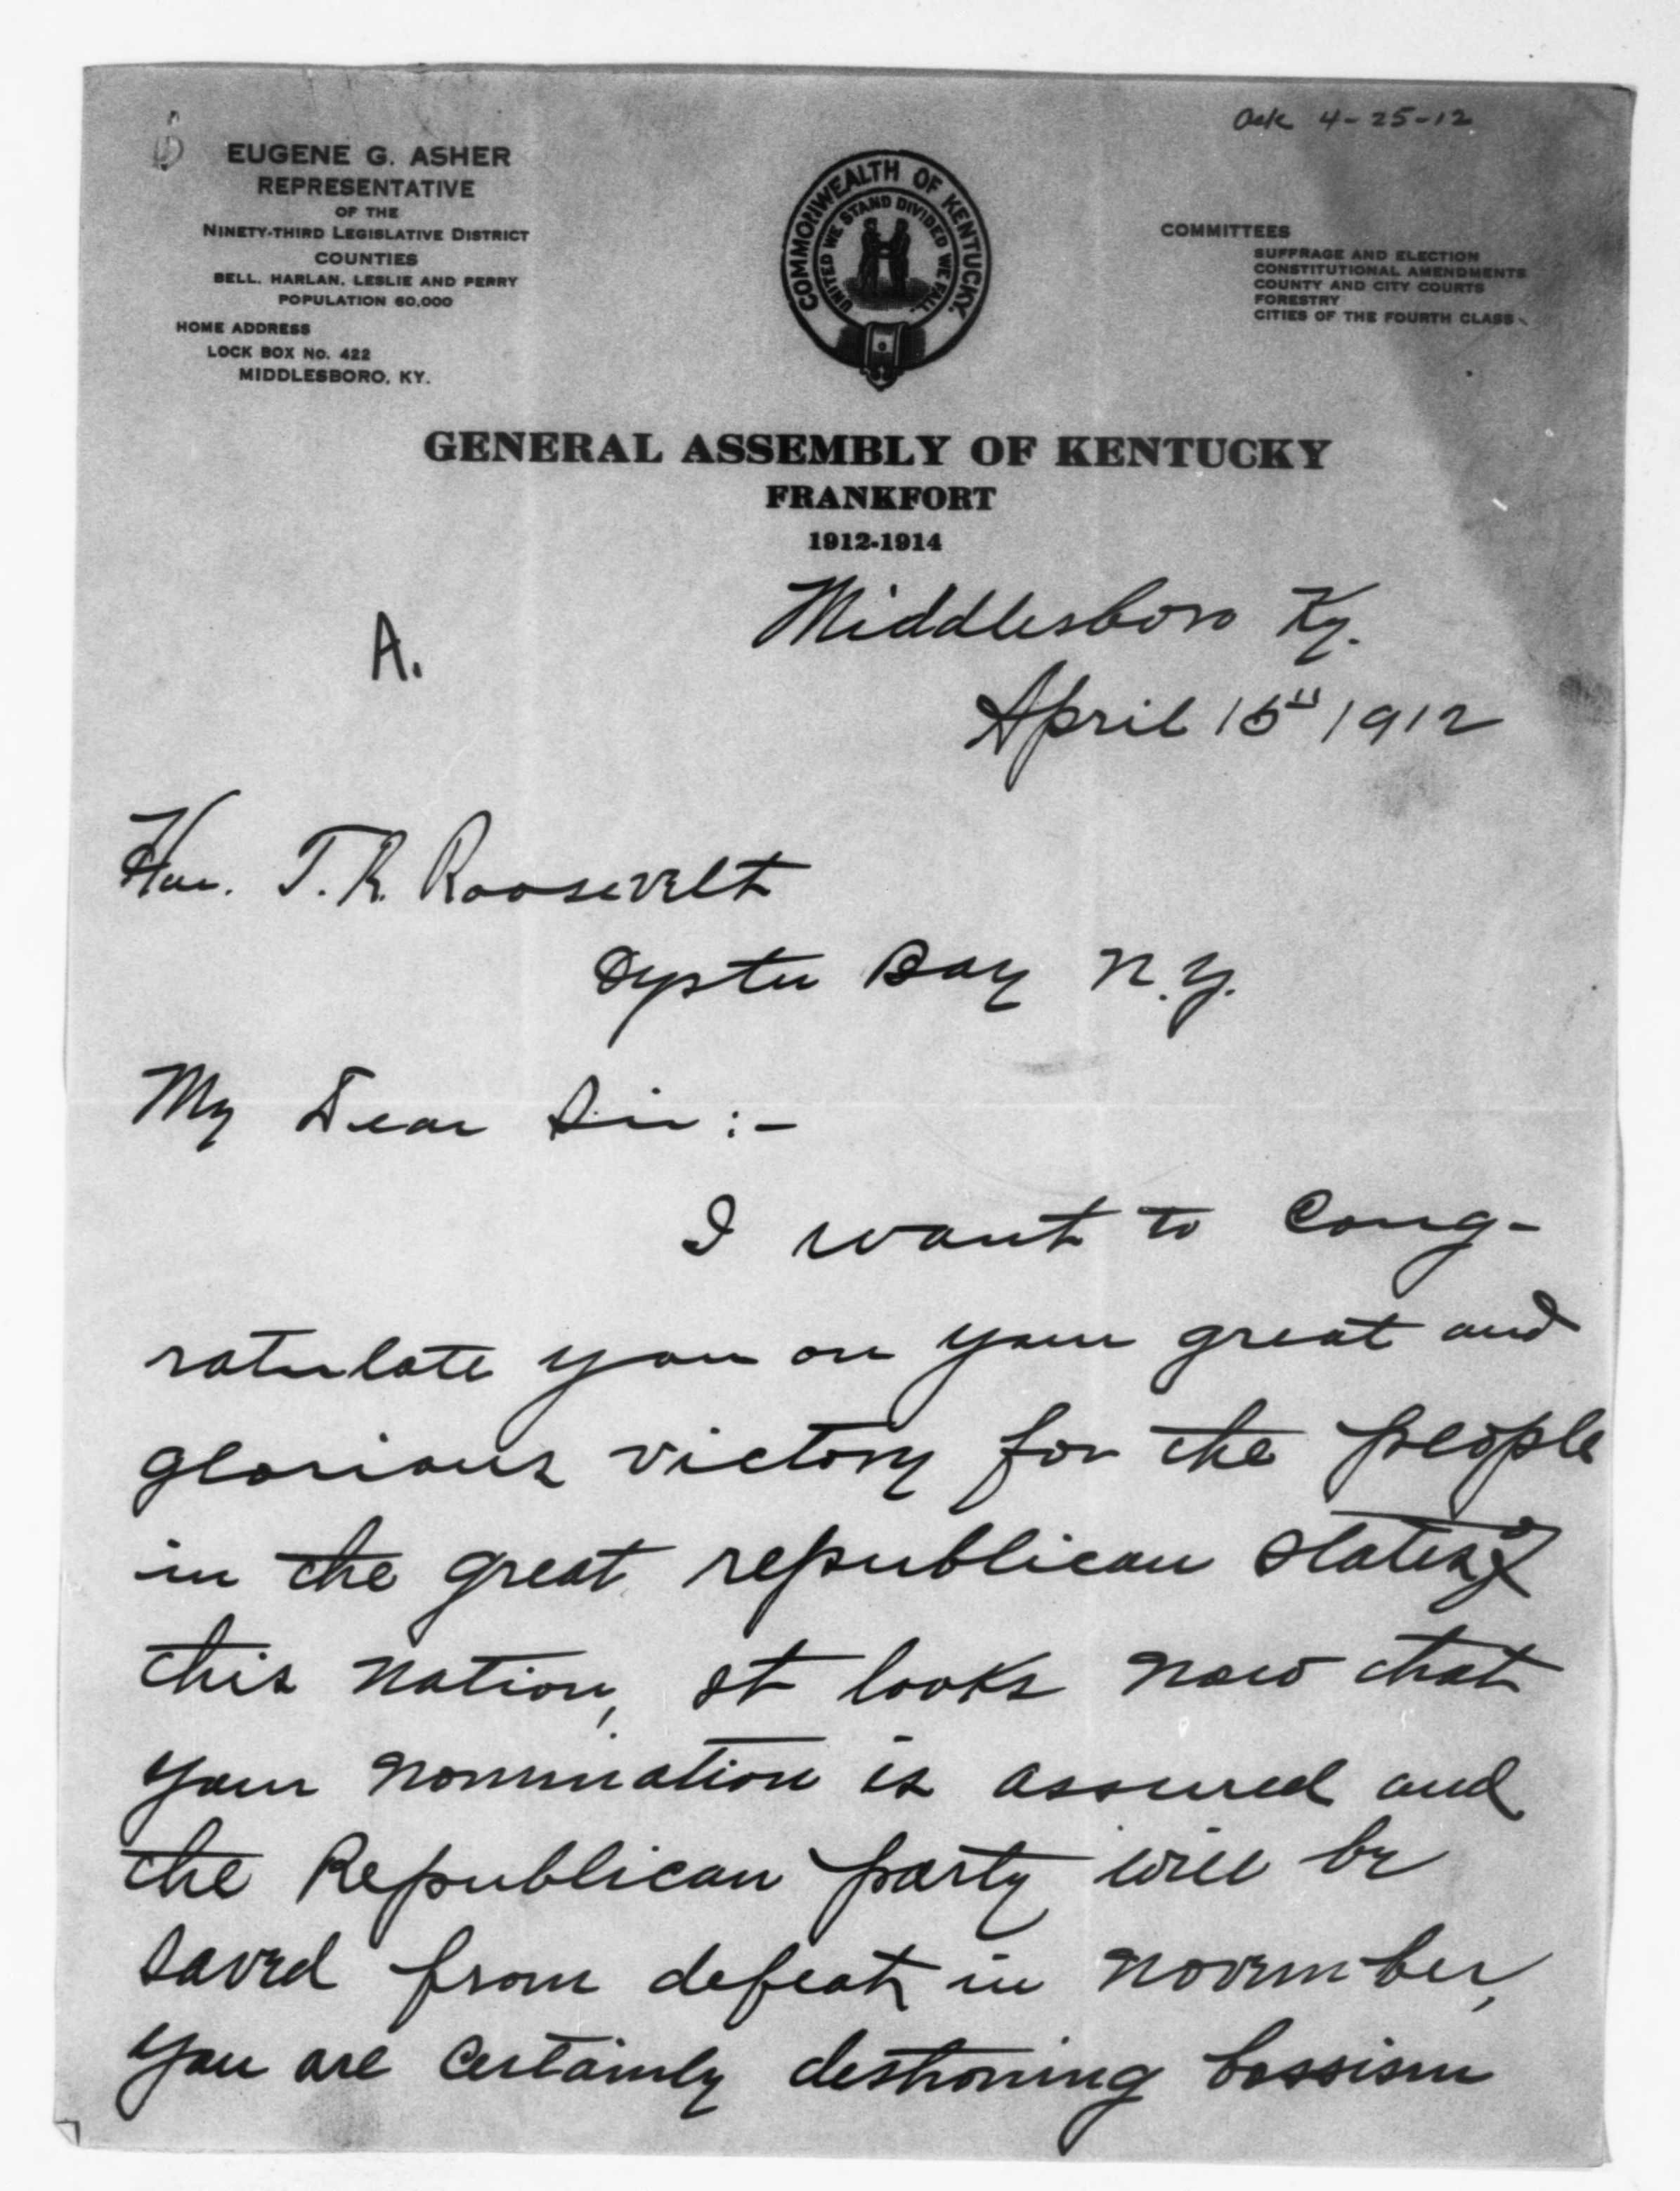 Ack 4-25-12
EUGENE G. ASHER
REPRESENTATIVE
OF THE
NINETY-THIRD LEGISLATIVE DISTRICT
COUNTIES
BELL, HARLAN, LESLIE AND PERRY
POPULATION 60,000
HOME ADDRESS
LOCK BOX No. 422
MIDDLESBORO, KY.
COMMONWEALTH OF KENTUCKY.
UNITED WE STAND DIVIDED WE FALL.
COMMITTEES
SUFFRAGE AND ELECTION
CONSTITUTIONAL AMENDMENTS
COUNTY AND CITY COURTS
FORESTRY
CITIES OF THE FOURTH CLASS
GENERAL ASSEMBLY OF KENTUCKY
FRANKFORT
1912-1914
A.
Middlesboro Ky.
April 15" 1912
Hon. T. R. Roosevelt
Oyster Bay N.Y.
My Dear Sir:-
I want to Cong-
ratulate you on your great and
glorious victory for the people
in the great republican states of
this nation, it looks now that
your nomination is assured and
the Republican party will be
saved from defeat in november,
you are certainly destroning bossism